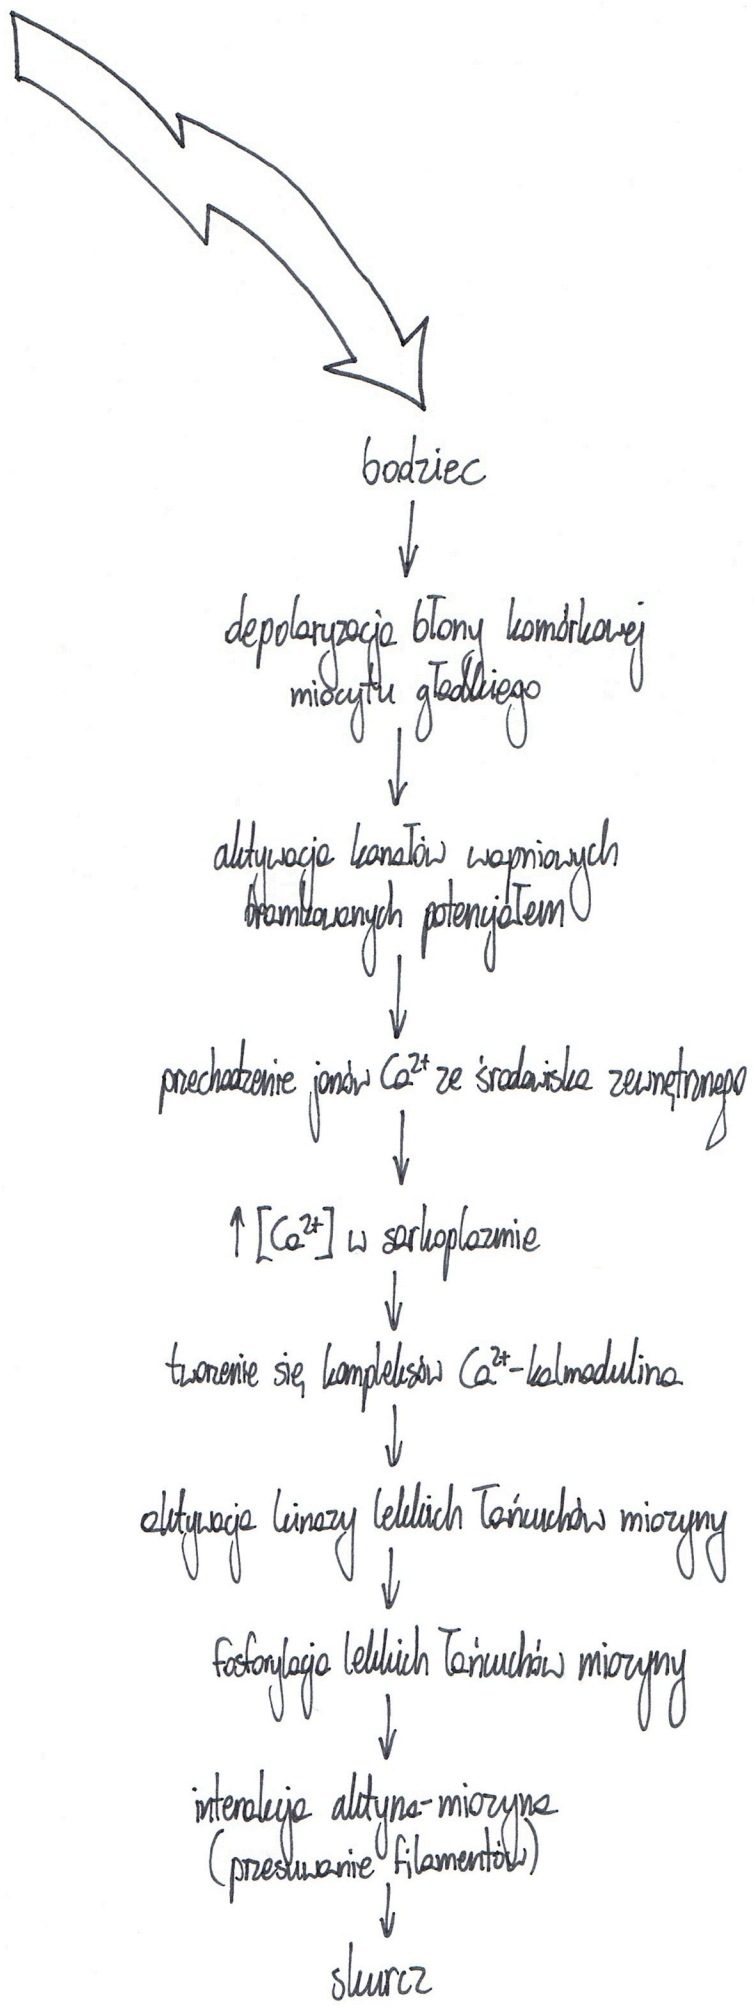 bodziec
depolaryzacja błony komórkowej
miocytu gładkiego
aktywacja kanałów wapniowych
bramkowanych potencjałem
przechodzenie jonów Ca²⁺ ze środowiska zewnętrznego
↑ [Ca²⁺] w sarkoplazmie
tworzenie się kompleksów Ca²⁺-kalmodulina
aktywacja kinazy lekkich łańcuchów miozyny
fosforylacja lekkich łańcuchów miozyny
interakcja aktyna-miozyna
(przesuwanie filamentów)
skurcz